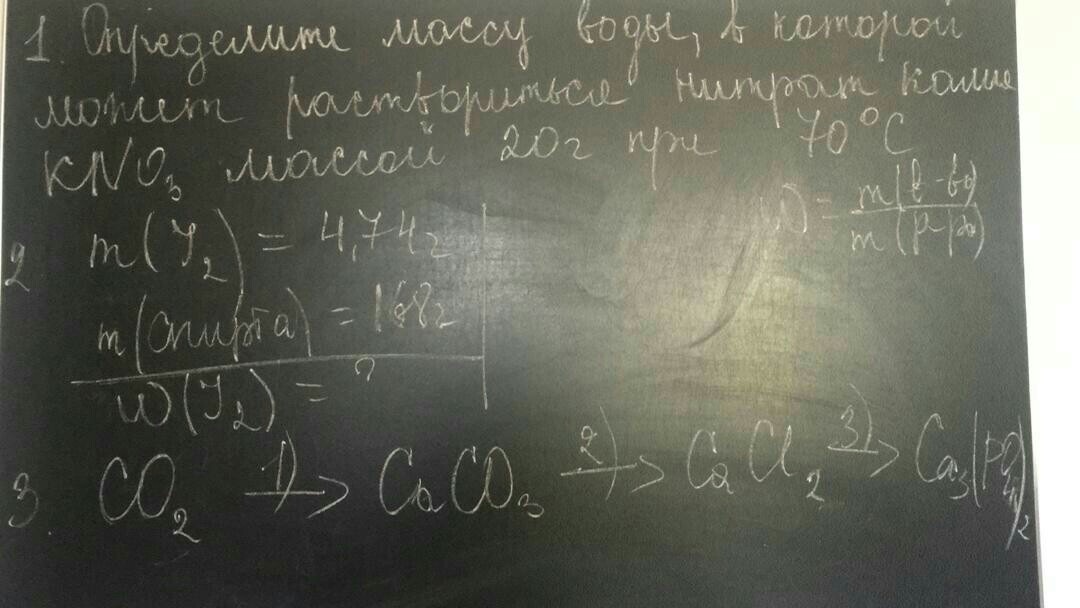 1. Определите массу воды, в которой
может раствориться нитрат калия
KNO₃ массой 20г при 70°C
ω = m(в-ва)
m(р-ра)
2 m(J₂) = 4,74г
m(спирта) = 168г
ω(J₂) = ?
3. CO₂ 1)→ CaCO₃ 2)→ CaCl₂ 3)→ Ca₃(PO₄)₂